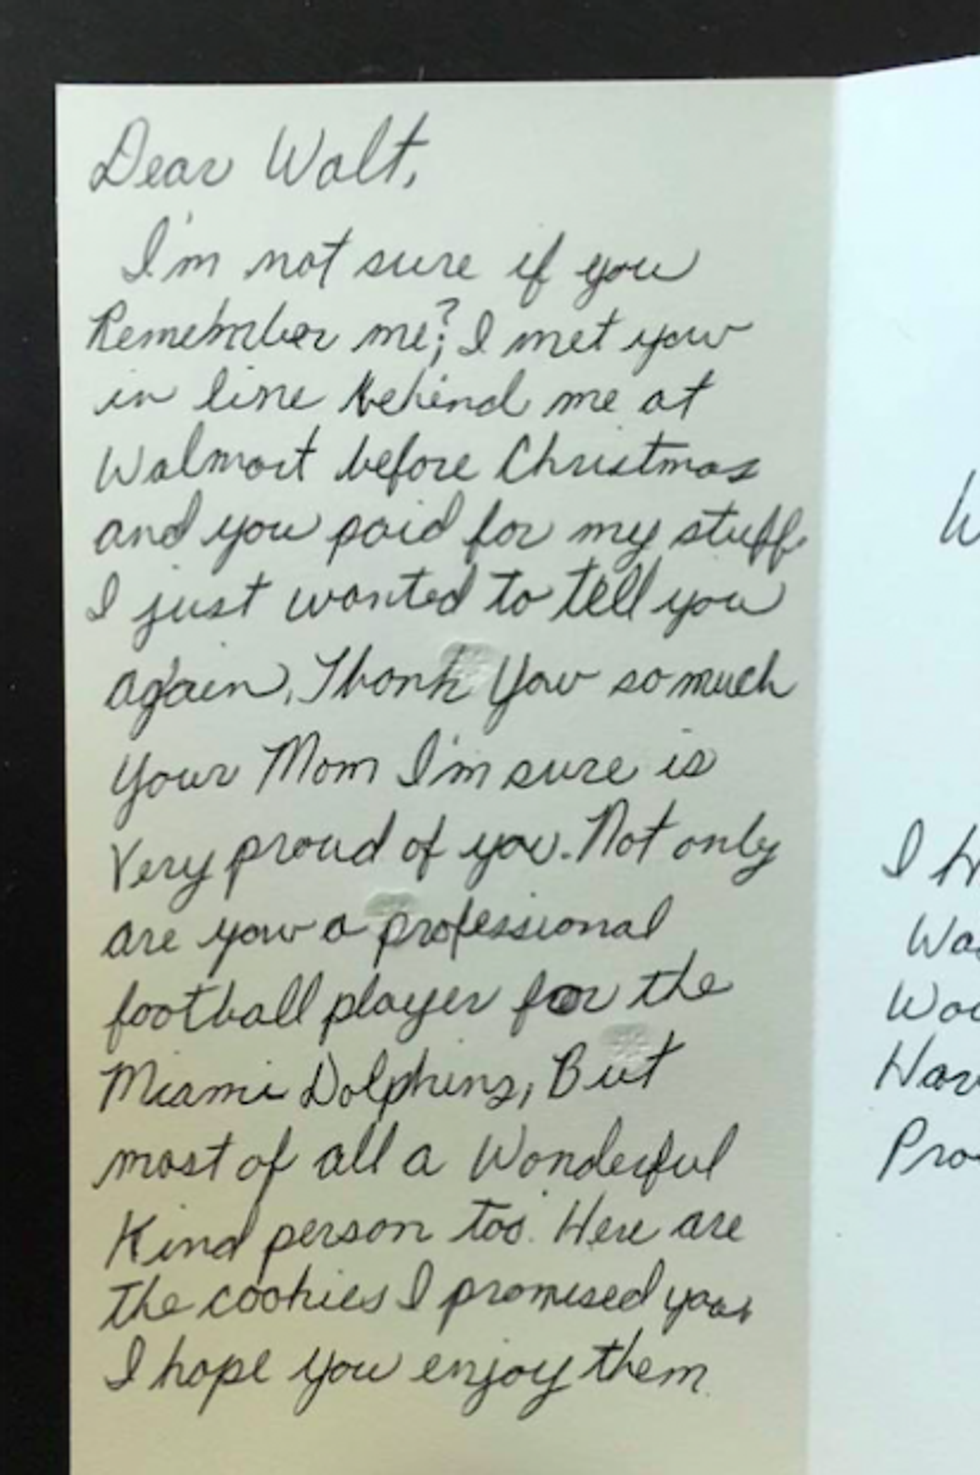 Dear Walt,
I'm not sure if you
Remember me?; I met you
in line behind me at
Walmart before Christmas
and you paid for my stuff.
I just wanted to tell you
again, Thank You so much
Your Mom I'm sure is
Very proud of you. Not only
are you a professional
football player for the
Miami Dolphins, But
most of all a Wonderful
Kind person too. Here are
the cookies I promised you,
I hope you enjoy them.
W
I H
Was
Wou
Hav
Pro